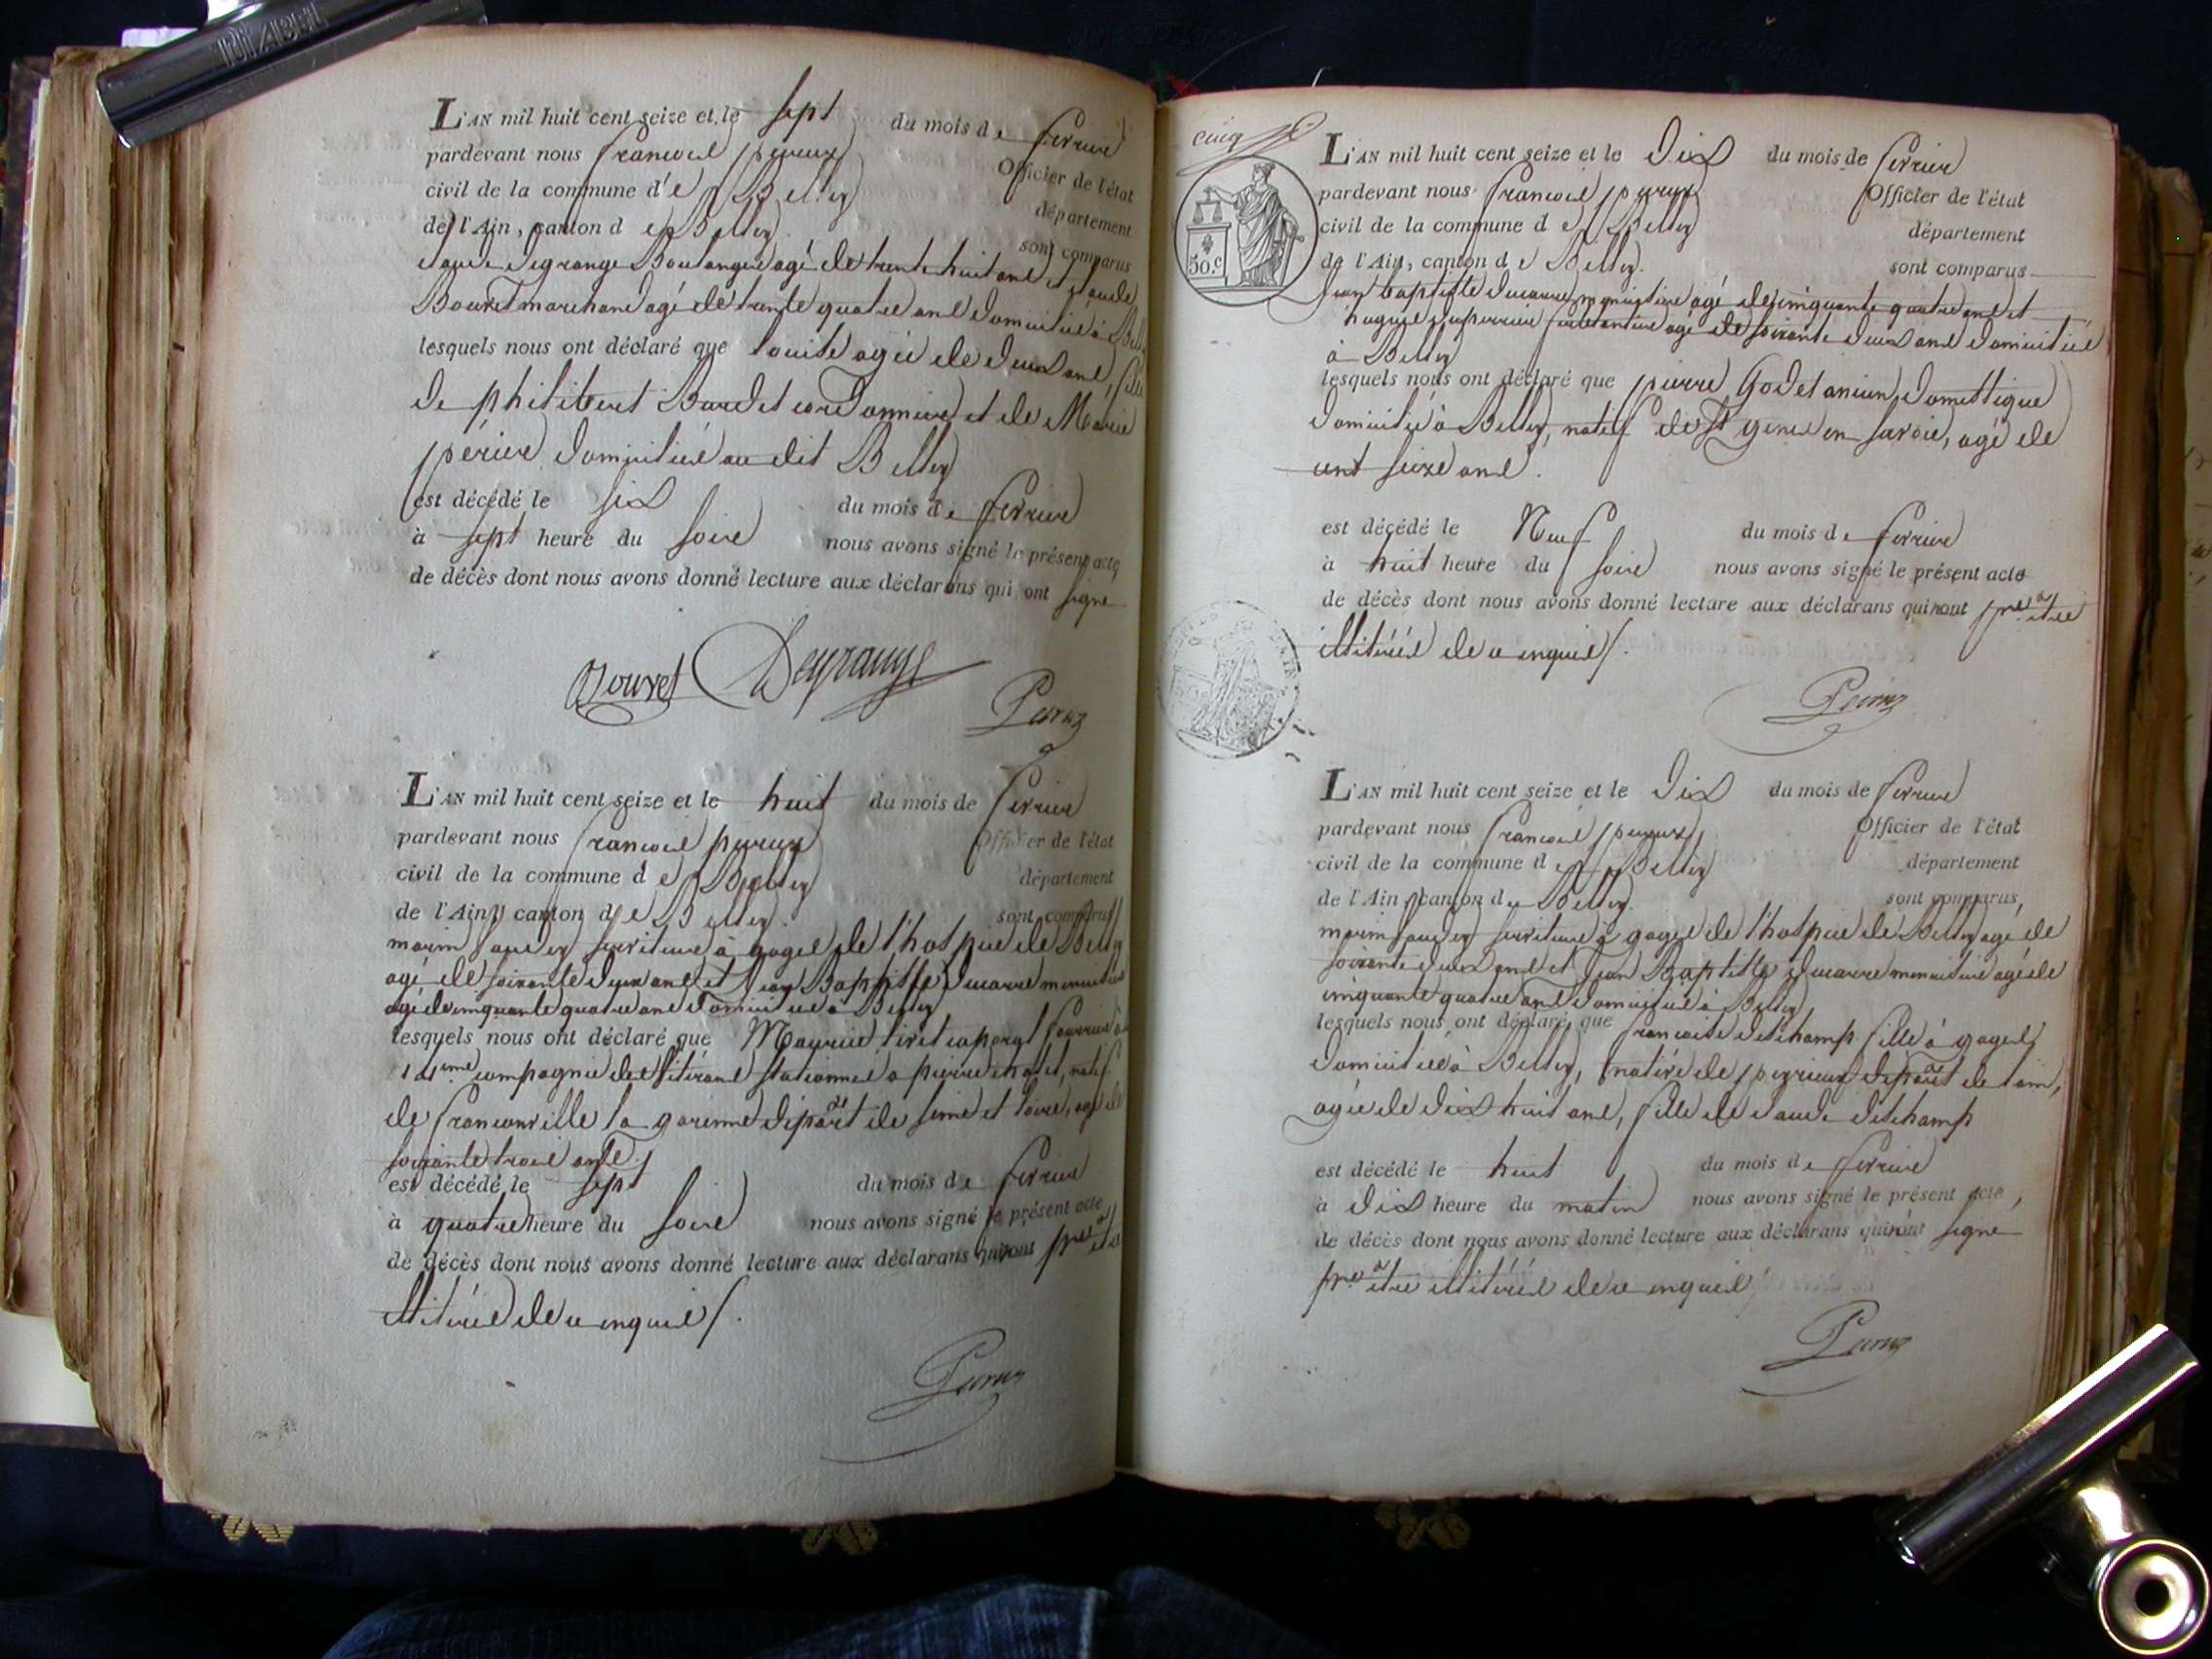 DIABEL
L'AN mil huit cent seize et le sept du mois de fevrier
pardevant nous francois peyreux Officier de l'état
civil de la commune d'e Belley département
de l'Ain, canton d e Belley sont comparus
claude degrange Boulanger agé de trente huit ans et claude
Bouvet marchand agé de trente quatre ans domicilié à
lesquels nous ont déclaré que louise agée de deux ans,
de philibert Burdet cordonnier et de Marie
périer domiciliés au dit Belley
est décédé le six du mois d e fevrier
à sept heure du soir nous avons signé le présent acte
de décès dont nous avons donné lecture aux déclarans qui ont signé
Bouvet Degrange
L'AN mil huit cent seize et le huit du mois de fevrier
pardevant nous francois peyreux Officier de l'état
civil de la commune d e Belley département
de l'Ain, canton d e Belley sont comparus
marin serviteur à gages de l'hospice de Belley
agé de soixante deux ans et Jean Baptiste ducarre menuisier
agé de cinquante quatre ans domicilié à Belley
lesquels nous ont déclaré que Maurice caporal fourrier à
compagnie des vétérans stationnée à pierre chatel, natif
de franconville la garenne départ de seine et loire, agé de
soixante trois ans
est décédé le sept du mois d e fevrier
à quatre heure du soir nous avons signé le présent acte
de décès dont nous avons donné lecture aux déclarans qui n'ont pre et
illitérés de ce enquis /.
cinq
50.c
L'AN mil huit cent seize et le dix du mois de fevrier
pardevant nous francois peyreux Officier de l'état
civil de la commune d e Belley département
de l'Ain, canton d e Belley. sont comparus
Jean baptiste ducarre menuisier agé de cinquante quatre ans et
hugues duperrier agé de soixante deux ans domiciliés
à Belley
lesquels nous ont déclaré que pierre Godet ancien domestique
domicilié à Belley, natif de St genix en savoie, agé de
cent seize ans.
est décédé le Neuf du mois d e fevrier
à huit heure du soir nous avons signé le présent acte
de décès dont nous avons donné lecture aux déclarans qui n'ont pre etre
illitérés de ce enquis /.
L'AN mil huit cent seize et le dix du mois de fevrier
pardevant nous francois peyreux Officier de l'état
civil de la commune d e Belley département
de l'Ain, canton d e Belley. sont comparus,
marin serviteur à gages de l'hospice de Belley agé de
soixante deux ans et Jean Baptiste ducarre menuisier agé de
cinquante quatre ans domicilié à Belley
lesquels nous ont déclaré que francoise deschamp fille à gages
domiciliée à Belley, native de peyrieux départ de l'ain,
agée de dix huit ans, fille de claude deschamp
est décédé le huit du mois d e fevrier
à dix heure du matin nous avons signé le présent acte,
de décès dont nous avons donné lecture aux déclarans qui n'ont signé
pre etre illitérés de ce enquis